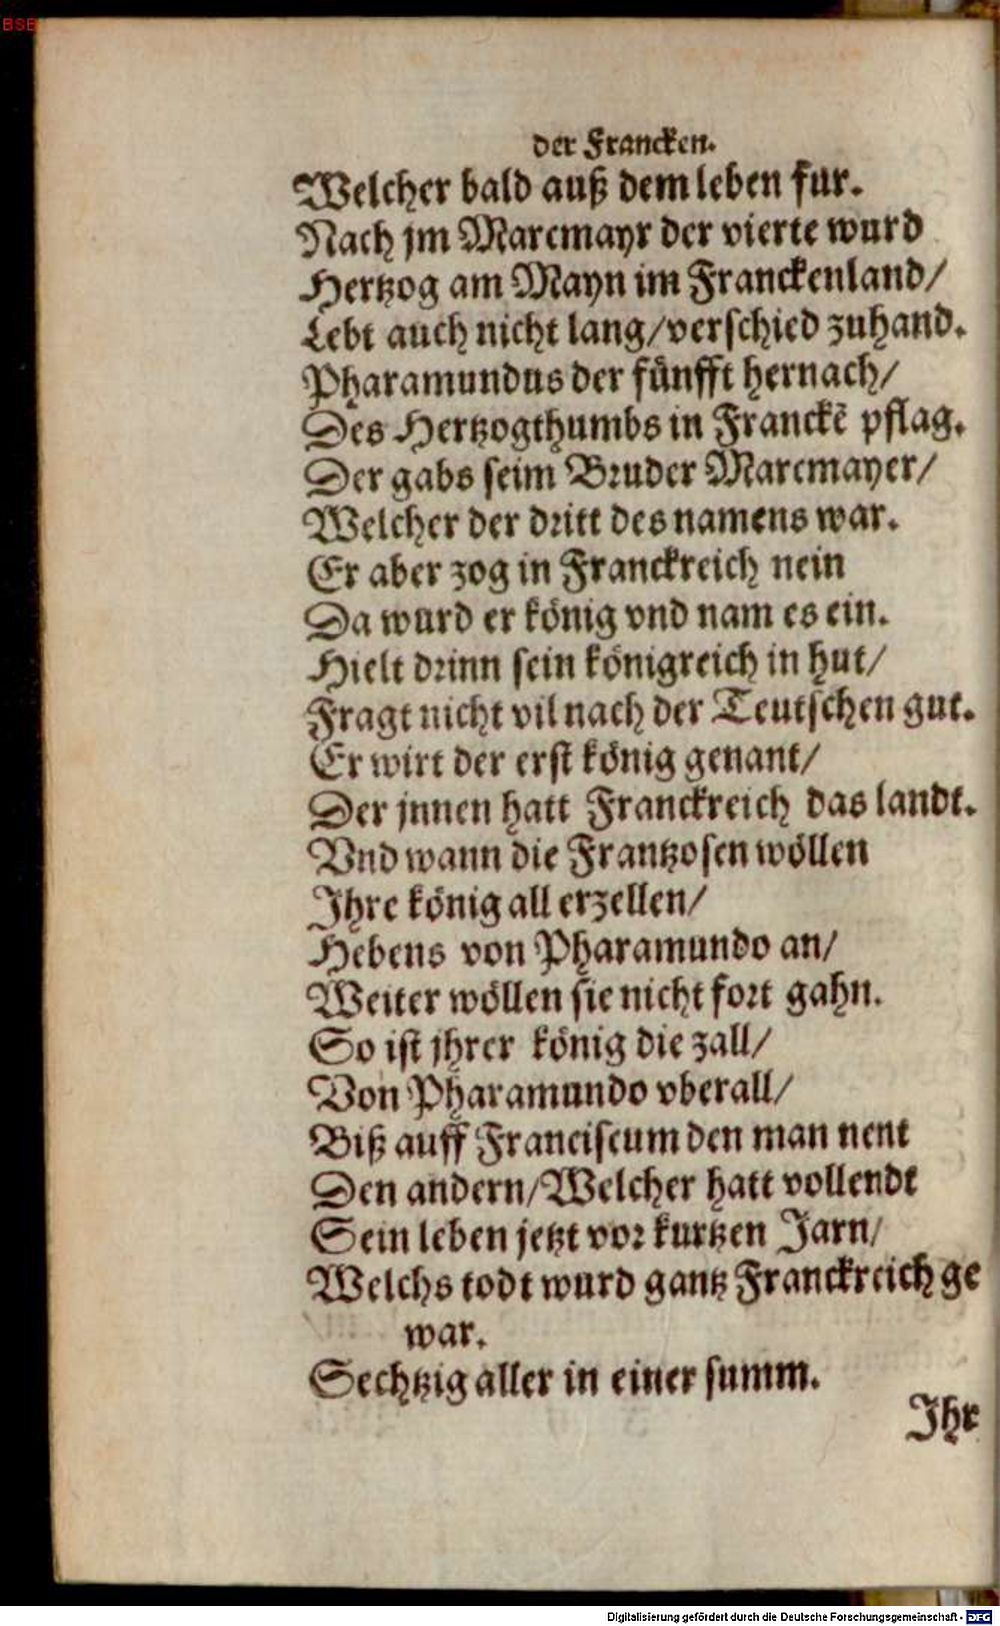 BSB
der Francken.
Welcher bald auß dem leben fur.
Nach jm Marcmayr der vierte wurd
Hertzog am Mayn im Franckenland/
Lebt auch nicht lang/verschied zuhand.
Pharamundus der fünfft hernach/
Des Hertzogthumbs in Franckẽ pflag.
Der gabs seim Bruder Marcmayer/
Welcher der dritt des namens war.
Er aber zog in Franckreich nein
Da wurd er könig vnd nam es ein.
Hielt drinn sein königreich in hut/
Fragt nicht vil nach der Teutschen gut.
Er wirt der erst könig genant/
Der jnnen hatt Franckreich das landt.
Vnd wann die Frantzosen wöllen
Ihre könig all erzellen/
Hebens von Pharamundo an/
Weiter wöllen sie nicht fort gahn.
So ist jhrer könig die zall/
Von Pharamundo vberall/
Biß auff Franciscum den man nent
Den andern/Welcher hatt vollendt
Sein leben jetzt vor kurtzen Jarn/
Welchs todt wurd gantz Franckreich ge
war.
Sechtzig aller in einer summ.
Ihr
Digitalisierung gefördert durch die Deutsche Forschungsgemeinschaft - DFG